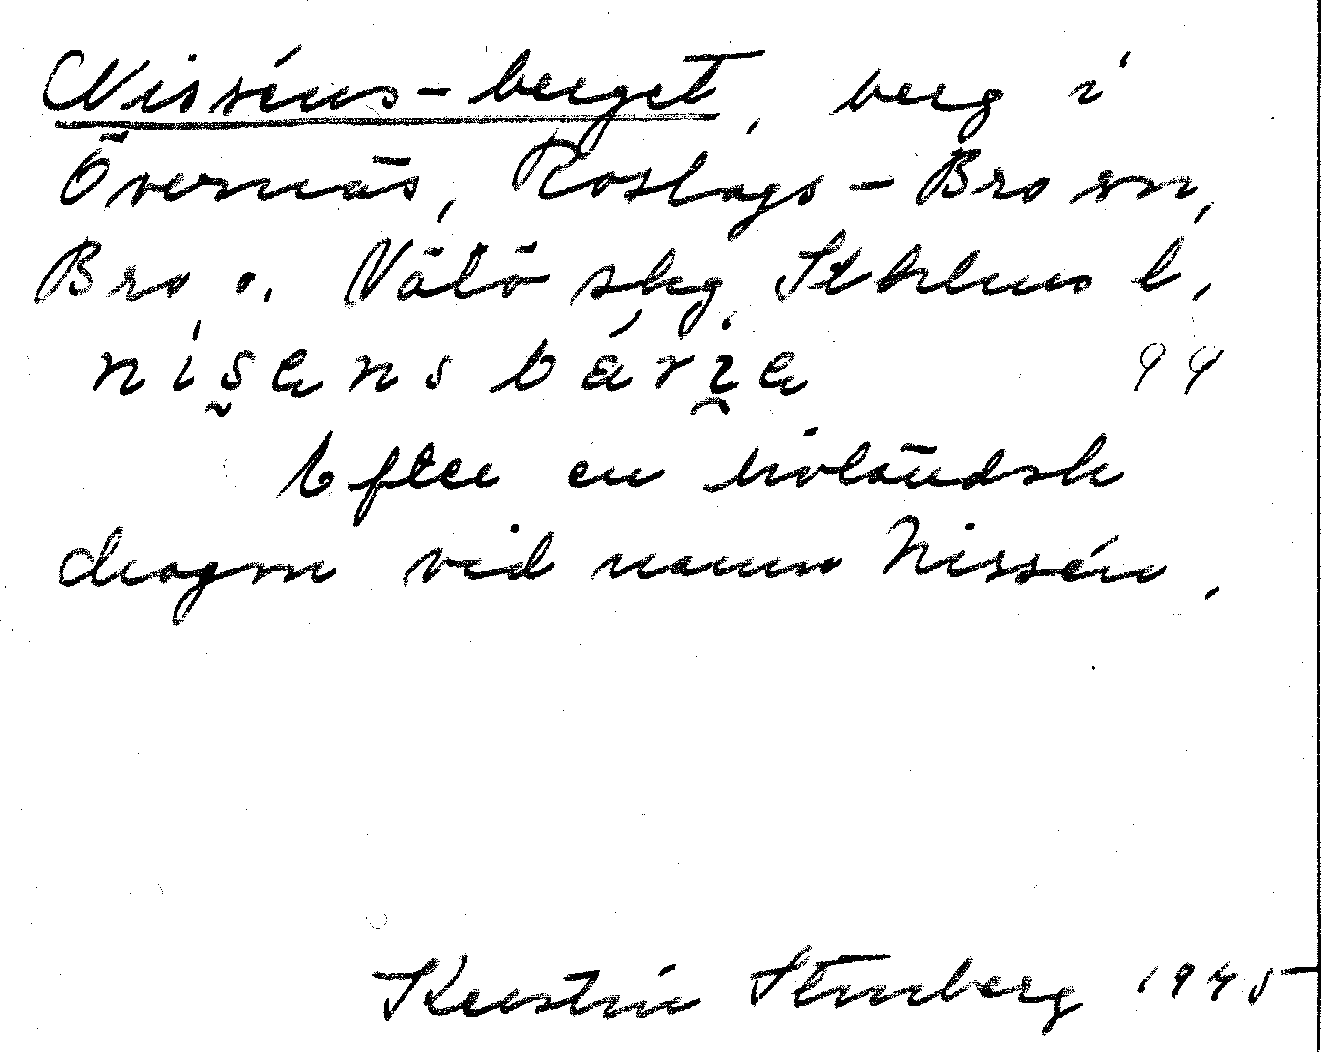 Nisséns-berget, berg i
Övernäs, Roslags-Bro sn,
Bro o. Vätö skg, Sthlms l.
nisens bárja 99
Efter en livländsk
dragon vid namn Nissén.
Kerstin Stenberg 1945